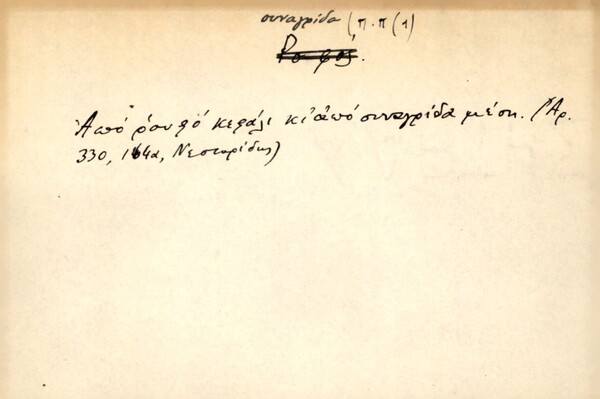 συναγρίδα (π.π (1)
Ροφός.
Ἀπό ῥουφό κεφάλι κι ἀπό συναγρίδα μέση. (Ἀρ.
330, 164α, Νεστορίδης)